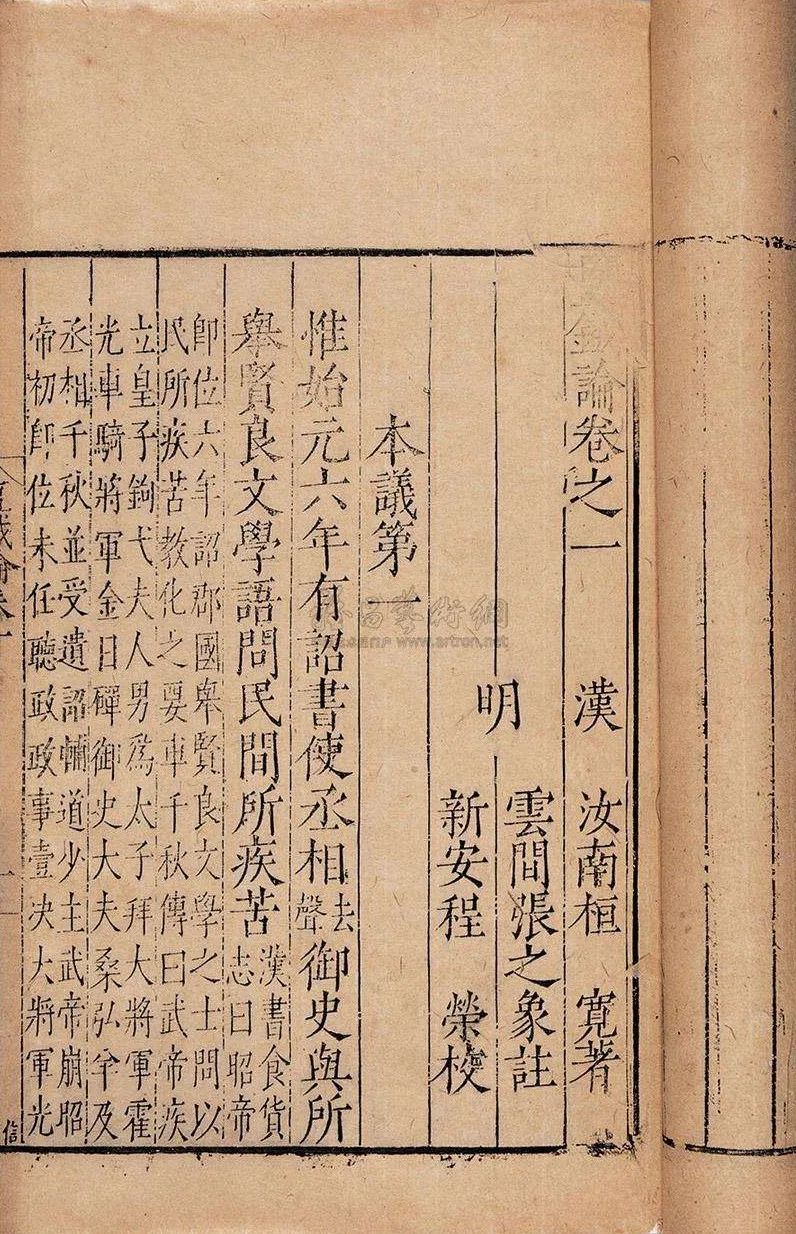 鹽鐵論卷之一
漢 汝南桓 寬著
明 雲間張之象註
新安程 榮校
本議第一
惟始元六年有詔書使丞相去聲御史與所
舉賢良文學語問民間所疾苦漢書食貨志曰昭帝
即位六年詔郡國舉賢良文學之士問以
民所疾苦教化之要車千秋傳曰武帝疾
立皇子鉤弋夫人男為太子拜大將軍霍
光車騎將軍金日磾御史大夫桑弘羊及
丞相千秋並受遺詔輔道少主武帝崩昭
帝初即位未任聽政政事壹决大將軍光
信
www.artron.net